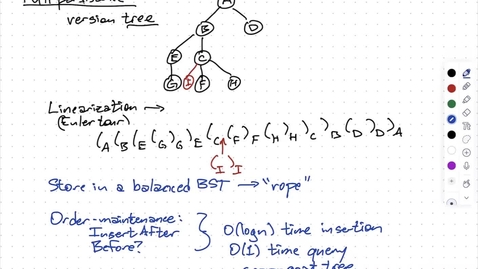 version tree
A
B D
E C
G I F H
Linearization →
(Euler tour)
(A (B (E (G )G )E (C (F )F (H )H )C )B (D )D )A
(I )I
Store in a balanced BST → "rope"
Order-maintenance:
Insert After
Before?
O(log n) time insertion
O(1) time query